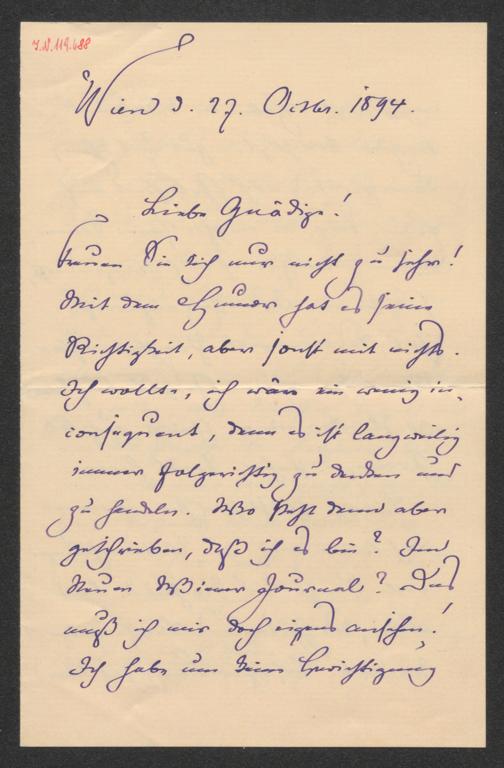 J.N. 119.688
Wien d. 27. Octbr. 1894.
Liebe Gnädige!
Freuen Sie sich nur nicht zu sehr!
Mit dem Humor hat es seine
Richtigkeit, aber sonst mit nichts.
Ich wollte, ich wäre ein wenig in-
consequent, denn es ist langweilig
immer folgerichtig zu denken und
zu handeln. Wo steht denn aber
geschrieben, daß ich es bin? Im
Neuen Wiener Journal? Das
muß ich mir doch eigens ansehen!
Ich habe um keine Berichtigung